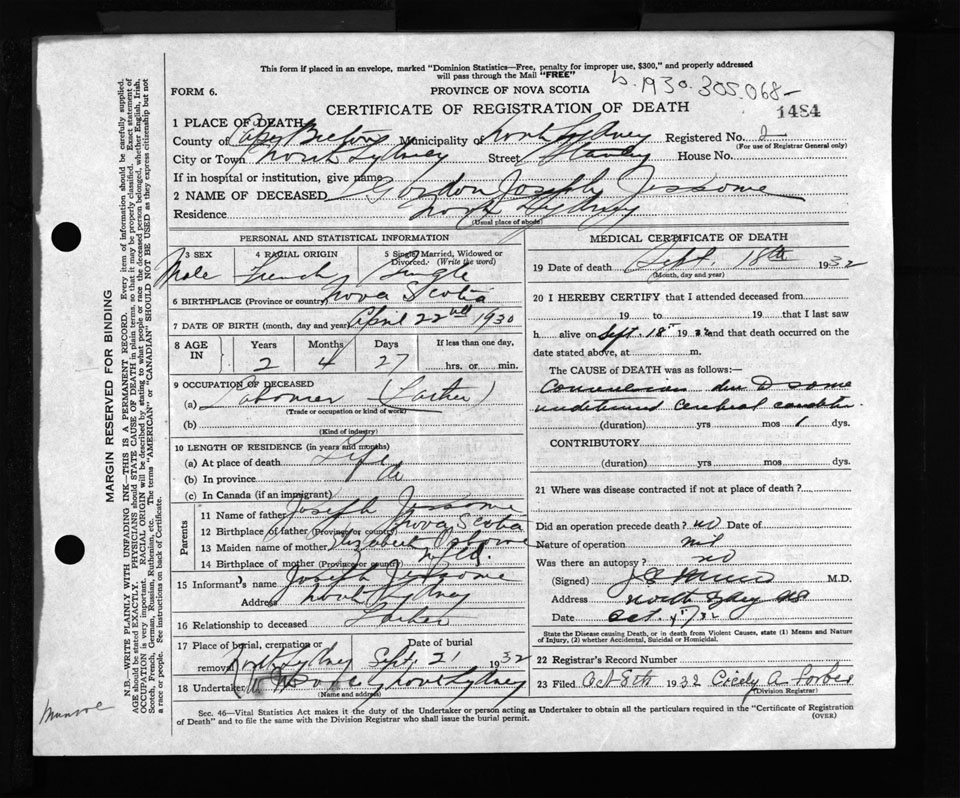 This form if placed in an envelope, marked "Dominion Statistics—Free, penalty for improper use, $300," and properly addressed
will pass through the Mail "FREE"
b. 1930.305,068-
FORM 6.
PROVINCE OF NOVA SCOTIA
CERTIFICATE OF REGISTRATION OF DEATH
1484
1 PLACE OF DEATH
County of Cape Breton Municipality of North Sydney Registered No. 2
(For use of Registrar General only)
City or Town North Sydney Street Stanley House No.
If in hospital or institution, give name
2 NAME OF DECEASED Gordon Joseph Jessome
Residence North Sydney
(Usual place of abode)
PERSONAL AND STATISTICAL INFORMATION
3 SEX 4 RACIAL ORIGIN 5 Single, Married, Widowed or
Divorced. (Write the word)
Male French Single
6 BIRTHPLACE (Province or country) Nova Scotia
7 DATE OF BIRTH (month, day and year) April 22nd 1930
8 AGE IN Years Months Days If less than one day,
2 4 27 hrs. or min.
9 OCCUPATION OF DECEASED
(a) Labourer (Father)
(Trade or occupation or kind of work)
(b)
(Kind of industry)
10 LENGTH OF RESIDENCE (in years and months)
(a) At place of death Life
(b) In province do
(c) In Canada (if an immigrant)
Parents
11 Name of father Joseph Jessome
12 Birthplace of father (Province or country) Nova Scotia
13 Maiden name of mother Elizabeth Osborne
14 Birthplace of mother (Province or country) Nfld.
15 Informant's name Joseph Jessome
Address North Sydney
16 Relationship to deceased Father
17 Place of burial, cremation or Date of burial
removal North Sydney Sept 21 1932
18 Undertaker North Sydney
(Name and address)
MEDICAL CERTIFICATE OF DEATH
19 Date of death Sept. 18th 1932
(Month, day and year)
20 I HEREBY CERTIFY that I attended deceased from
19 to 19 that I last saw
h alive on Sept. 18th 1932 and that death occurred on the
date stated above, at m.
The CAUSE of DEATH was as follows:—
Convulsions due to some
undetermined cerebral condition
(duration) yrs mos 1 dys.
CONTRIBUTORY
(duration) yrs mos dys.
21 Where was disease contracted if not at place of death?
Did an operation precede death? no Date of
Nature of operation nil
Was there an autopsy? no
(Signed) M.D.
Address North Sydney NS
Date Oct. 32
State the Disease causing Death, or in death from Violent Causes, state (1) Means and Nature
of Injury, (2) whether Accidental, Suicidal or Homicidal.
22 Registrar's Record Number
23 Filed Oct 8th 1932 Cicely A Forbes
(Division Registrar)
Sec. 46—Vital Statistics Act makes it the duty of the Undertaker or person acting as Undertaker to obtain all the particulars required in the "Certificate of Registration
of Death" and to file the same with the Division Registrar who shall issue the burial permit.
(OVER)
MARGIN RESERVED FOR BINDING
N.B.—WRITE PLAINLY WITH UNFADING INK—THIS IS A PERMANENT RECORD. Every item of information should be carefully supplied.
AGE should be stated EXACTLY. PHYSICIANS should STATE CAUSE OF DEATH in plain terms, so that it may be properly classified. Exact statement of
OCCUPATION is very important. RACIAL ORIGIN will be described by stating to what people or race the deceased person belonged, whether English, Irish,
Scotch, French, German, Russian, Ruthenian, etc. The terms "AMERICAN" or "CANADIAN" SHOULD NOT BE USED as they express citizenship but not
a race or people. See instructions on back of Certificate.
Munroe